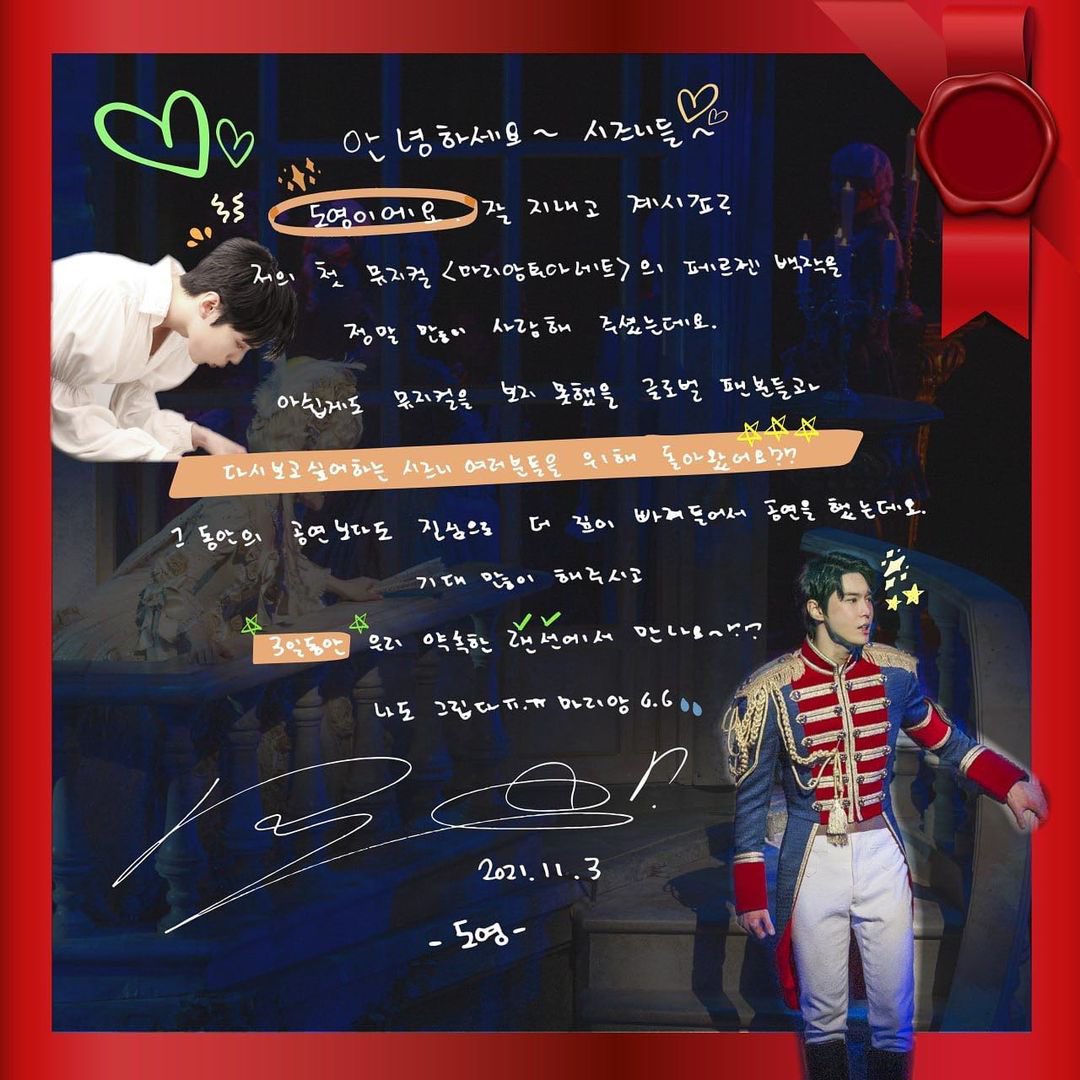 안녕하세요~ 시즈니들~
도영이에요. 잘 지내고 계시죠?
저의 첫 뮤지컬 <마리앙투아네트>의 페르젠 백작을
정말 많이 사랑해 주셨는데요.
아쉽게도 뮤지컬을 보지 못했을 글로벌 팬분들과
다시보고싶어하는 시즈니 여러분들을 위해 돌아왔어요??
그 동안의 공연보다도 진심으로 더 깊이 빠져들어서 공연을 했는데요.
기대 많이 해주시고
3일동안 우리 약속한 랜선에서 만나요~??
나도 그립다ㅠ.ㅠ 마리앙 6.6
2021.11.3
-도영-